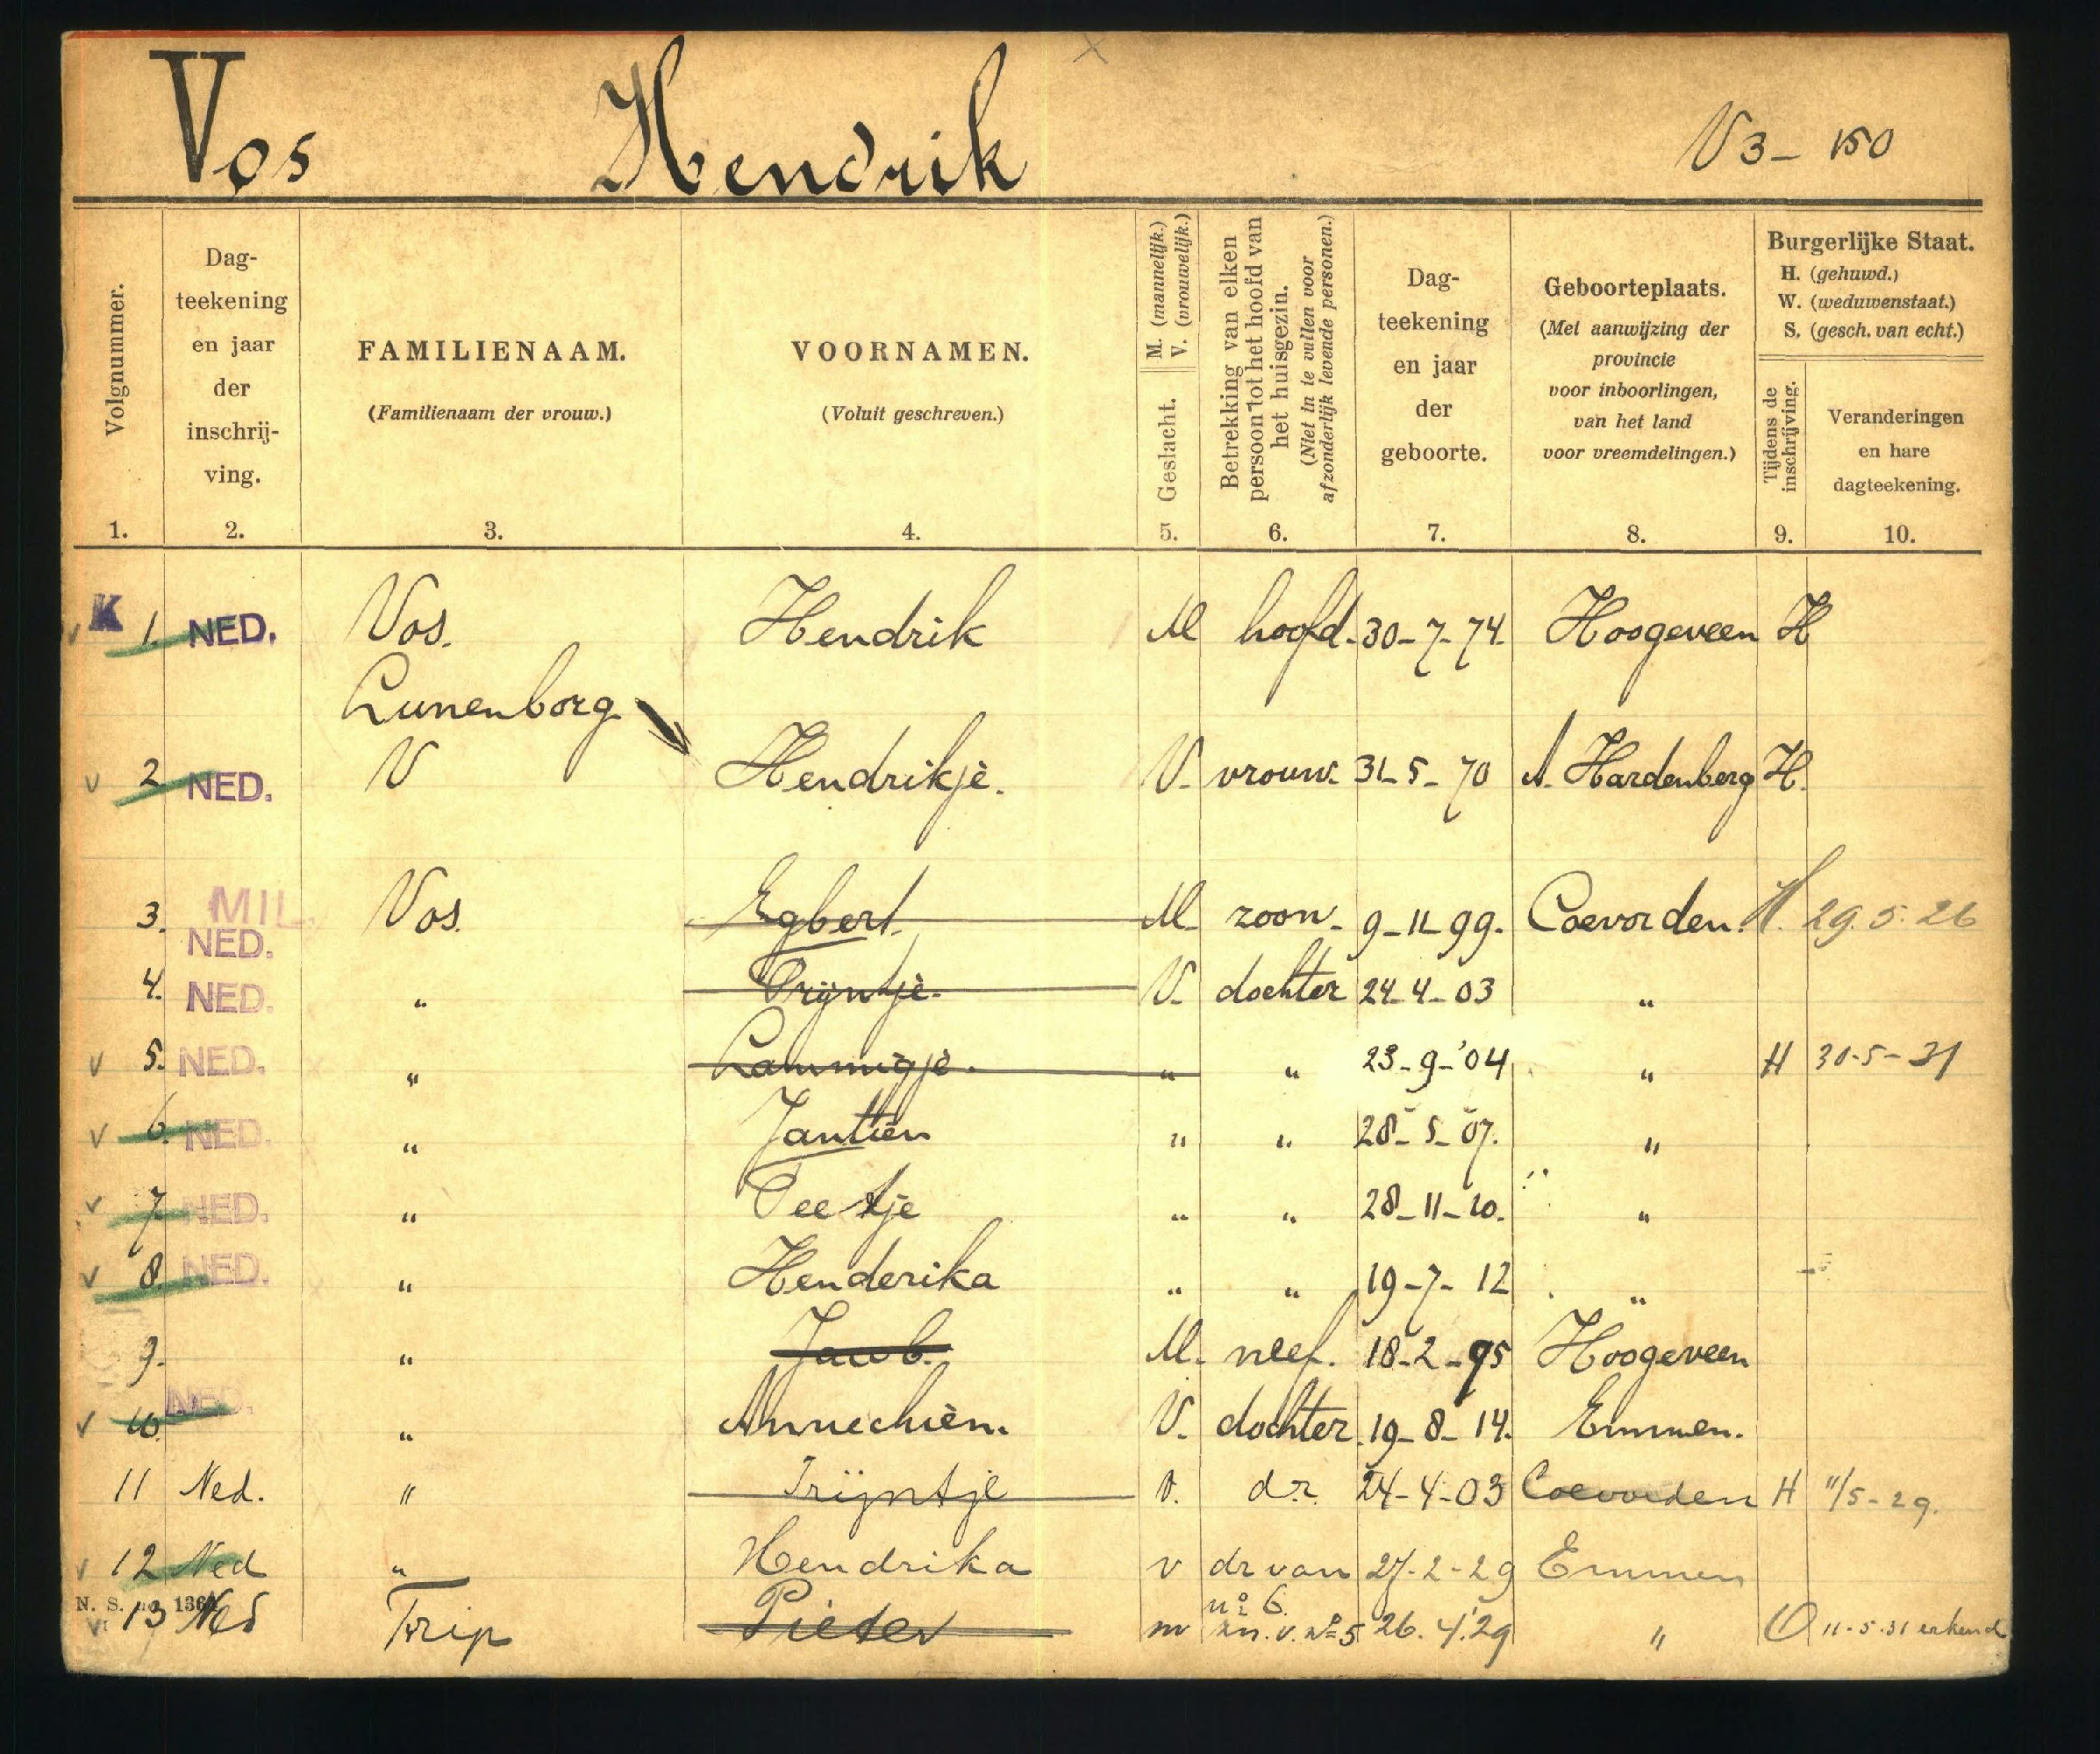 Vos Hendrik V 3 - 150
Volgnummer.
Dag-
teekening
en jaar
der
inschrij-
ving.
FAMILIENAAM.
(Familienaam der vrouw.)
VOORNAMEN.
(Voluit geschreven.)
M. (mannelijk.)
V. (vrouwelijk.)
Geslacht.
Betrekking van elken
persoon tot het hoofd van
het huisgezin.
(Niet in te vullen voor
afzonderlijk levende personen.)
Dag-
teekening
en jaar
der
geboorte.
Geboorteplaats.
(Met aanwijzing der
provincie
voor inboorlingen,
van het land
voor vreemdelingen.)
Burgerlijke Staat.
H. (gehuwd.)
W. (weduwenstaat.)
S. (gesch. van echt.)
Tijdens de
inschrijving.
Veranderingen
en hare
dagteekening.
1. 2. 3. 4. 5. 6. 7. 8. 9. 10.
K 1. NED. Vos. Hendrik M hoofd. 30-7-74. Hoogeveen H
Lunenborg
2 NED. V Hendrikje. V. vrouw. 31-5-70 A. Hardenberg H.
3. MIL. NED. Vos. Egbert. M. zoon. 9-11-99. Coevorden. H. 29.5.26
4. NED. " Trijntje. V. dochter 24-4-03 "
5. NED. " Lammigje. " " 23-9-'04 " H 30-5-31
6. NED. " Jantien " " 28-5-07. "
7 NED. " Peetje " " 28-11-10. "
8. NED. " Henderika " " 19-7-12 "
9. " Jacob. M. neef. 18-2-95 Hoogeveen
10. NED. " Annechien. V. dochter. 19-8-14. Emmen.
11 Ned. " Trijntje V. dr. 24-4-03 Coevorden H 11/5-29.
12 Ned " Hendrika v dr van no 6. 27-2-29 Emmen
N. S. 1364
13 Ned Trip Pieter m zn. v. No 5 26.4.'29 " O 11-5.31 erkend